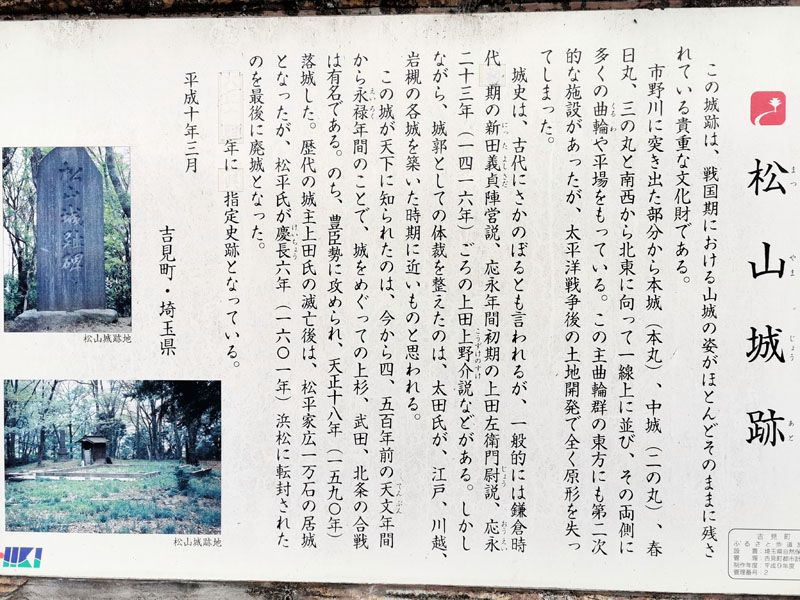 松山城跡
まつ やま じょう あと
この城跡は、戦国期における山城の姿がほとんどそのままに残さ
れている貴重な文化財である。
市野川に突き出た部分から本城（本丸）、中城（二の丸）、春
日丸、三の丸と南西から北東に向って一線上に並び、その両側に
多くの曲輪や平場をもっている。この主曲輪群の東方にも第二次
くるわ
的な施設があったが、太平洋戦争後の土地開発で全く原形を失っ
てしまった。
城史は、古代にさかのぼるとも言われるが、一般的には鎌倉時
代 期の新田義貞陣営説、応永年間初期の上田左衛門尉説、応永
にったよしさだ
じょう
おうえい
二十三年（一四一六年）ごろの上田上野介説などがある。しかし
こうずけのすけ
ながら、城郭としての体裁を整えたのは、太田氏が、江戸、川越、
岩槻の各城を築いた時期に近いものと思われる。
この城が天下に知られたのは、今から四、五百年前の天文年間
てんぶん
から永禄年間のことで、城をめぐっての上杉、武田、北条の合戦
えいろく
は有名である。のち、豊臣勢に攻められ、天正十八年（一五九〇年）
落城した。歴代の城主上田氏の滅亡後は、松平家広一万石の居城
となったが、松平氏が慶長六年（一六〇一年）浜松に転封された
けいちょう
のを最後に廃城となった。
年に 指定史跡となっている。
平成十年三月
吉見町・埼玉県
松山城跡碑
松山城跡地
松山城跡地
吉見町
ふるさと歩道
設置 埼玉県自然保
管理 吉見町都市計
制作年度 平成9年度
管理番号 2